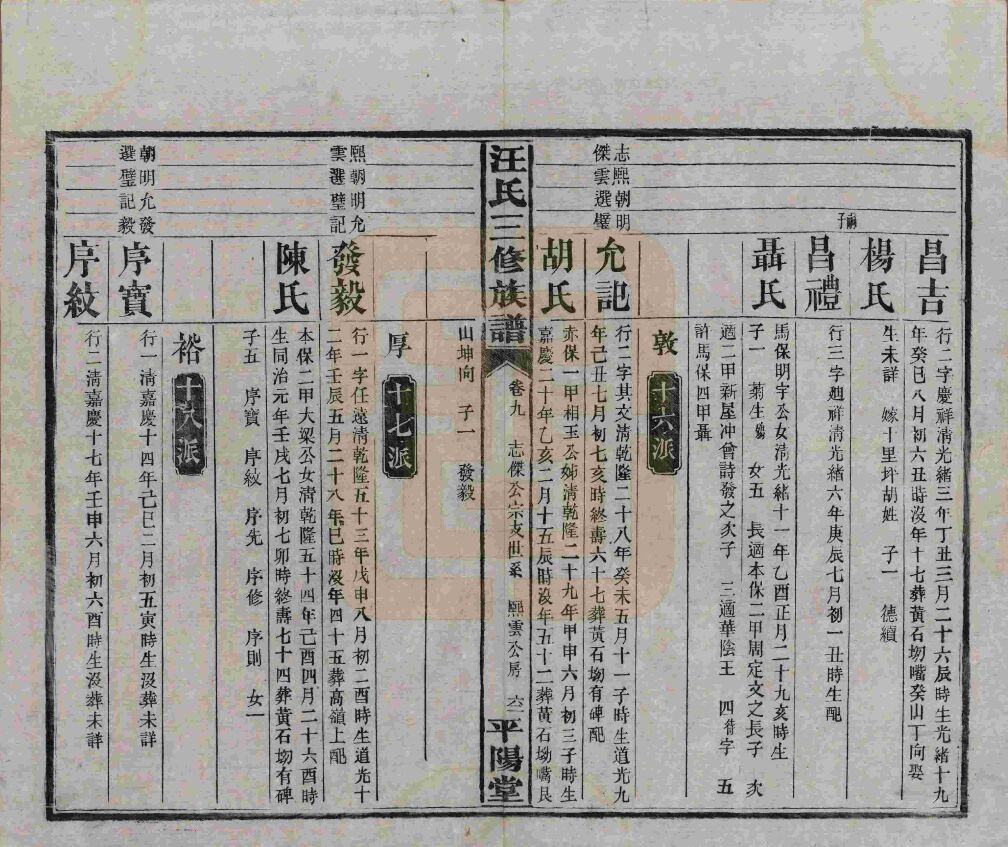 昌吉
行二字慶祥清光緒三年丁丑三月二十六辰時生光緒十九
年癸巳八月初六丑時沒年十七葬黃石坳嘴癸山丁向娶
楊氏
生未詳 嫁十里坪胡姓 子一 德纘
昌禮
行三字廸祥清光緒六年庚辰七月初一丑時生配
聶氏
馬保明字公女清光緒十一年乙酉正月二十九亥時生
子一 菊生 女五 長適本保二甲周定文之長子 次
適二甲新屋冲曾詩發之次子 三適華陰王 四 字 五
許馬保四甲聶
敦
十六派
志熙朝明
傑雲選璧
允記
行二字其文清乾隆二十八年癸未五月十一子時生道光九
年己丑七月初七亥時終壽六十七葬黃石坳有碑配
胡氏
赤保一甲相玉公姊清乾隆二十九年甲申六月初三子時生
嘉慶二十年乙亥二月十五辰時沒年五十二葬黃石坳嘴艮
汪氏三修族譜
卷九 志傑公宗支世系 熙雲公房
平陽堂
山坤向 子一 發毅
厚
十七派
熙朝明允
雲選璧記
發毅
行一字任遠清乾隆五十三年戊申八月初二酉時生道光十
二年壬辰五月二十八年巳時沒年四十五葬高嶺上配
陳氏
本保二甲大梁公女清乾隆五十四年己酉四月二十六酉時
生同治元年壬戌七月初七卯時終壽七十四葬黃石坳有碑
子五 序寶 序紋 序先 序修 序則 女一
裕
十八派
朝明允發
選璧記毅
序寶
行一清嘉慶十四年己巳二月初五寅時生沒葬未詳
序紋
行二清嘉慶十七年壬申六月初六酉時生沒葬未詳